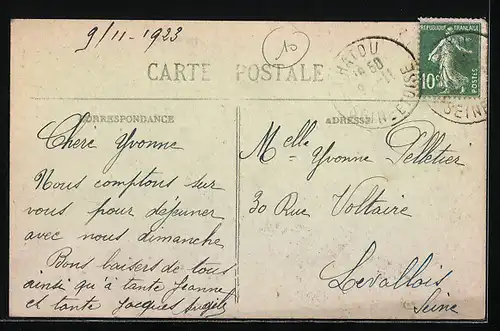 9/11-1923
10
CARTE POSTALE
CHATOU
18 50
9-11
SEINE-ET-OISE
10c
POSTES
CORRESPONDANCE
ADRESSE
Chère Yvonne
Nous comptons sur
vous pour déjeuner
avec nous dimanche
Bons baisers de tous
ainsi qu'à tante Jeanne
et tante Jacques
Melle Yvonne Pelletier
30 Rue Voltaire
Levallois
Seine